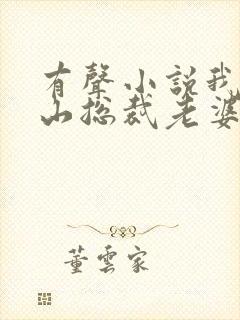 有聲小説我
山总裁老婆
董雲家